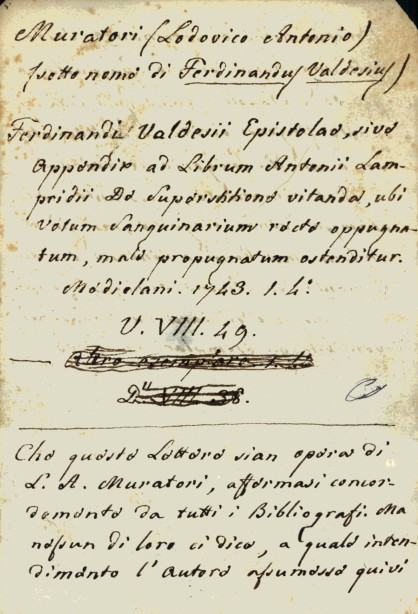 Muratori (Lodovico Antonio)
(sotto nome di Ferdinandus Valdesius)
Ferdinandi Valdesii Epistolae, sive
Appendix ad Librum Antonii Lam-
pridii De Superstitione vitanda, ubi
Votum Sanguinarium recte oppugna-
tum, male propugnatum ostenditur.
Mediolani. 1743. 1. 4.º
V. VIII. 49.
Altro esemplare 1. 4.º
D.u VIII. 38.
Che queste Lettere sian opera di
L. A. Muratori, affermasi concor-
demente da tutti i Bibliografi. Ma
nessun di loro ci dice, a quale inten-
dimento l'Autore assumesse quivi